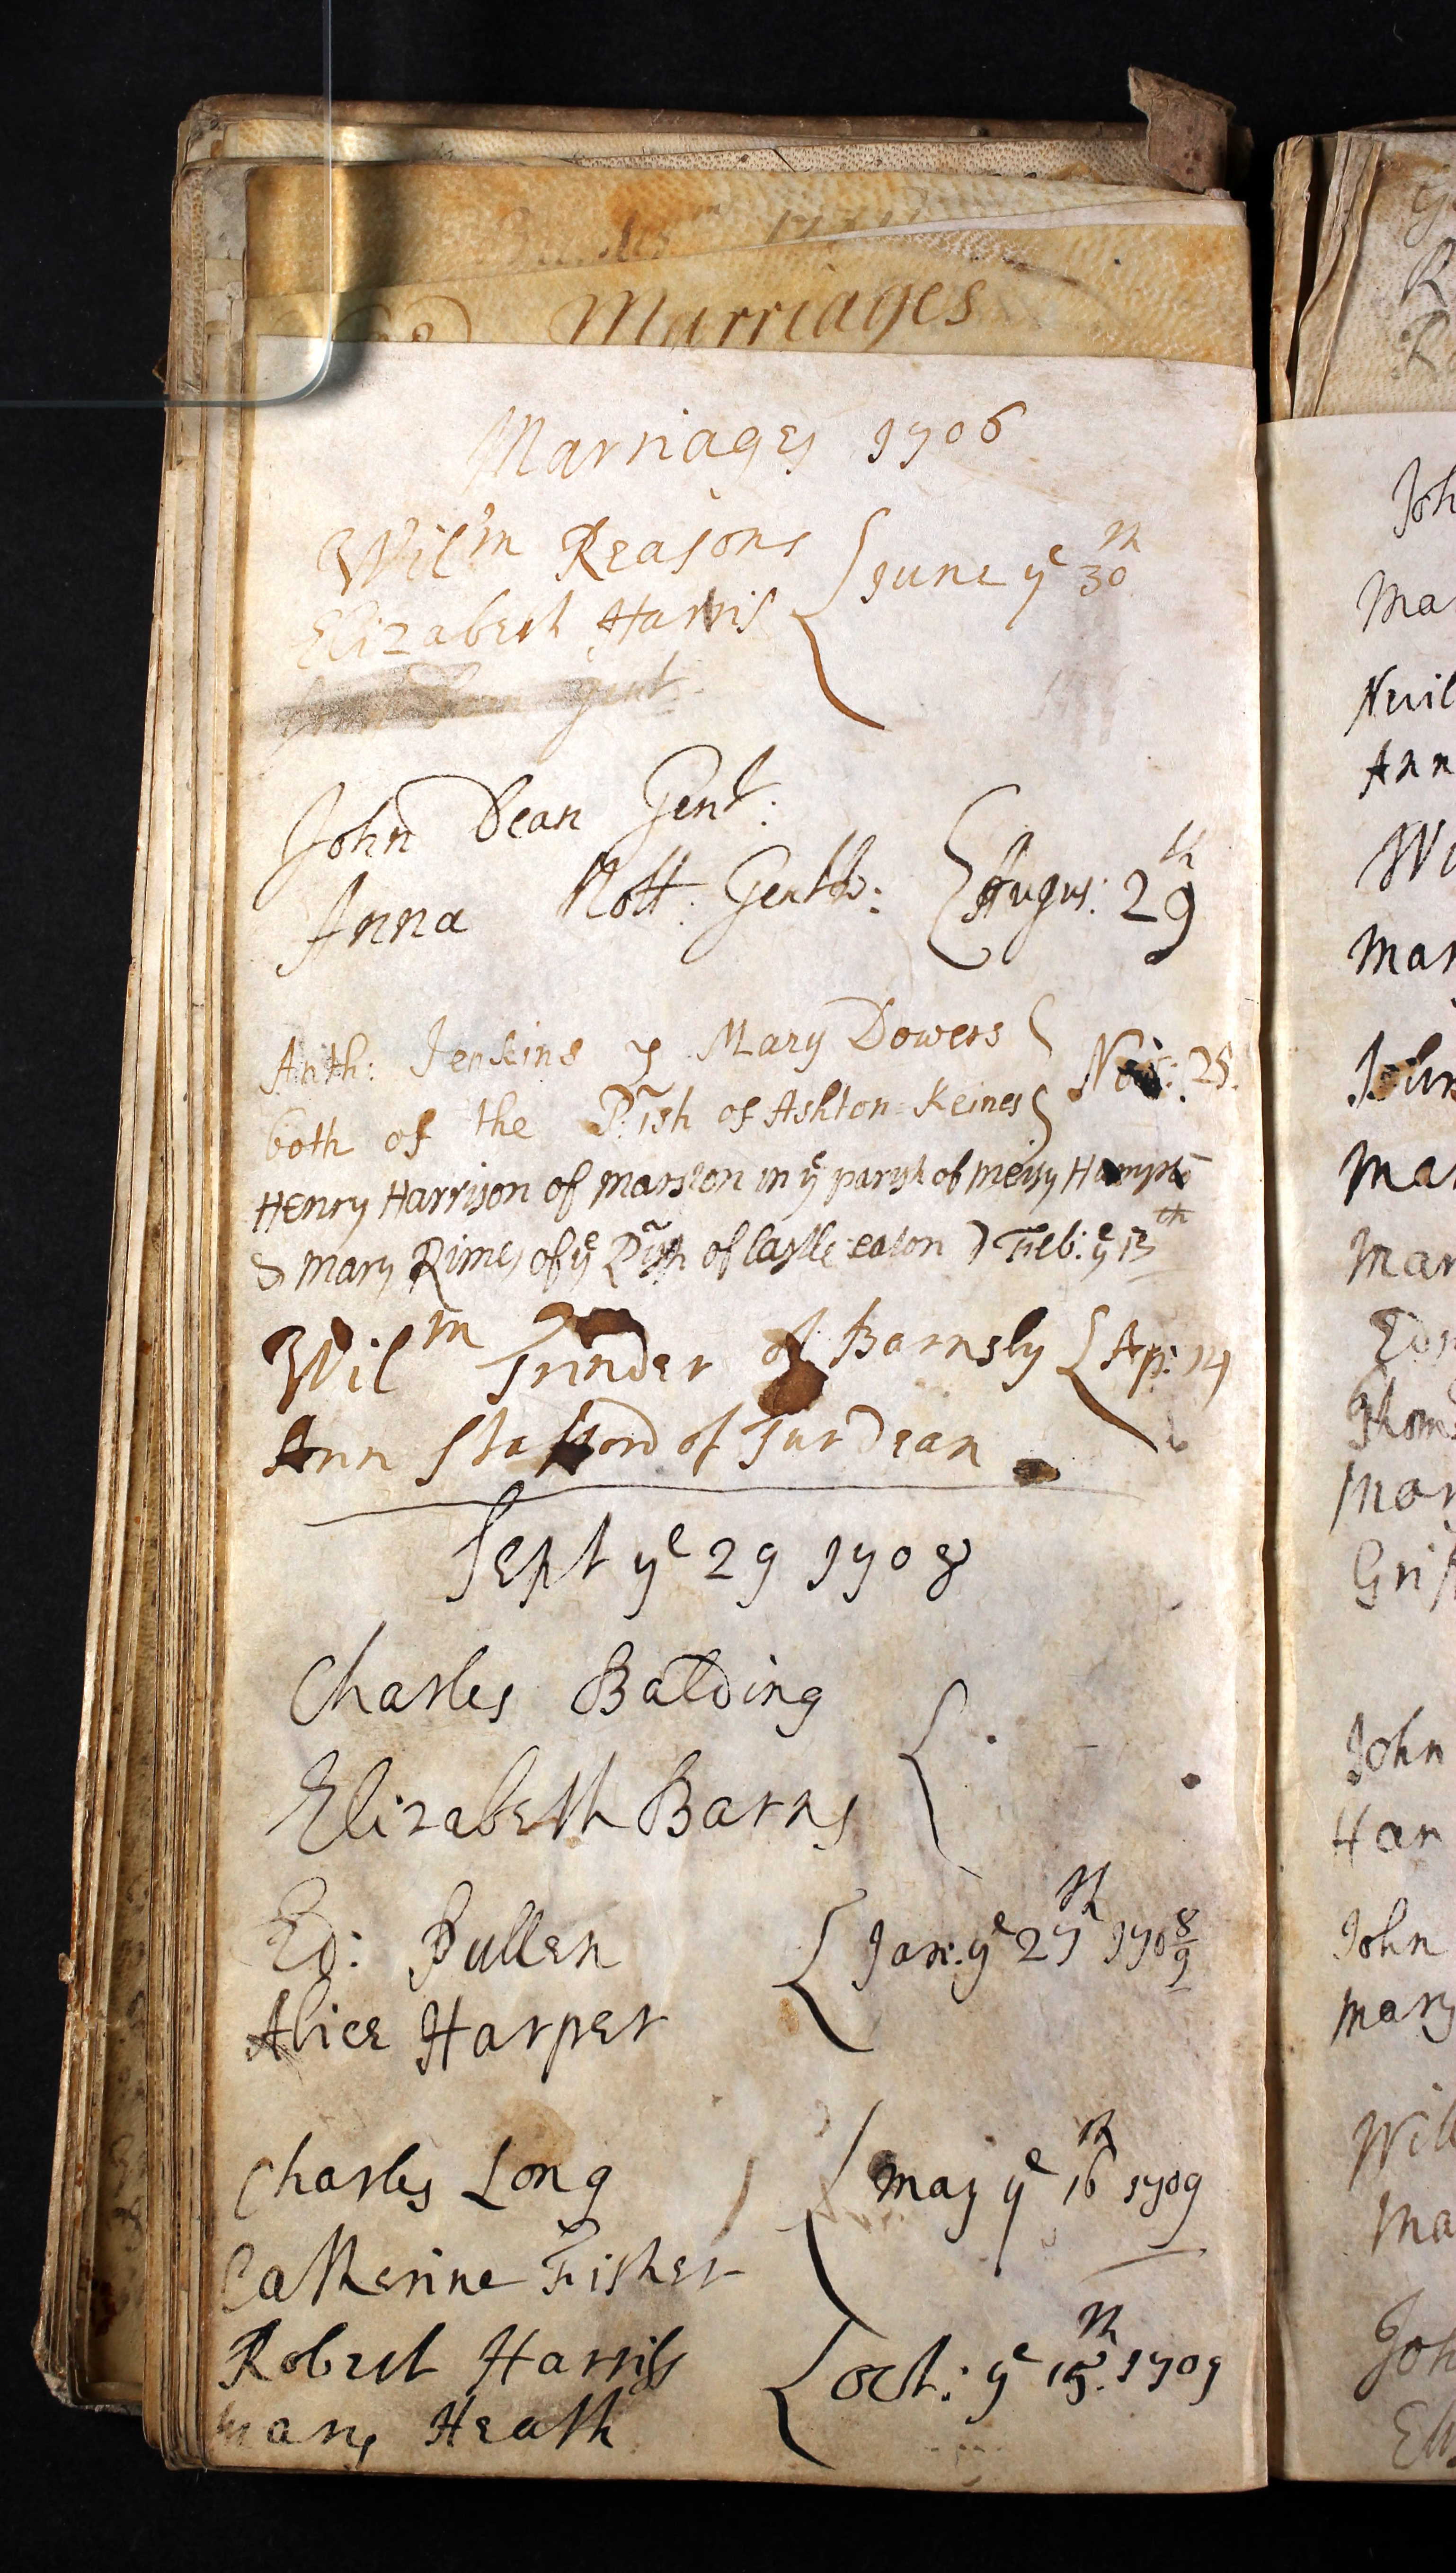 Marriages
Marriages 1706
Wilm Reasons
Elizabeth Harris { June ye 30th
Gent
John Dean Gent:
Anna Nott: Gentw: { Augus: 29th
Anth: Jenkins & Mary Dowers
both of the Prish of Ashton-Keines } Nov: 25.
Henry Harrison of Marston in ye parish of Meisy Hampto
& Mary Rimes of ye Prish of Castle eaton } Feb: ye 13th
Wilm Trinder of Barnsly { Ap: 14
Ann Stafford of Turdean
Sept ye 29 1708
Charles Balding
Elizabeth Barns {
Ed: Pullen
Alice Harper { Jan: ye 27th 1708/9
Charles Long
Catherine Fisher { may ye 16th 1709
Robert Harriss
mary Heath { oct: ye 15th: 1709
Joh
Ma
Nevil
Ann
Wi
Mar
John
Mar
Mar
Edw
Thom
Mar
Grif
John
Han
John
Mary
Will
Ma
Joh
Eli